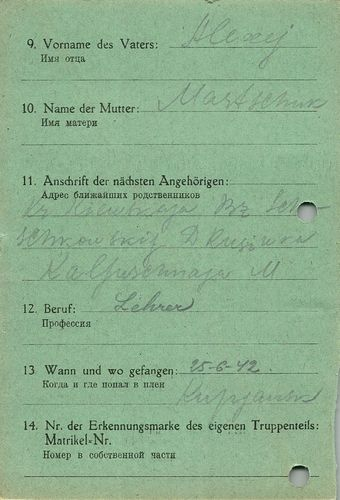 9. Vorname des Vaters: Alexej
Имя отца
10. Name der Mutter: Martschuk
Имя матери
11. Anschrift der nächsten Angehörigen:
Адрес ближайших родственников
12. Beruf: Lehrer
Профессия
13 Wann und wo gefangen: 25-6-42.
Когда и где попал в плен
14. Nr. der Erkennungsmarke des eigenen Truppenteils:
Matrikel-Nr.
Номер в собственной части